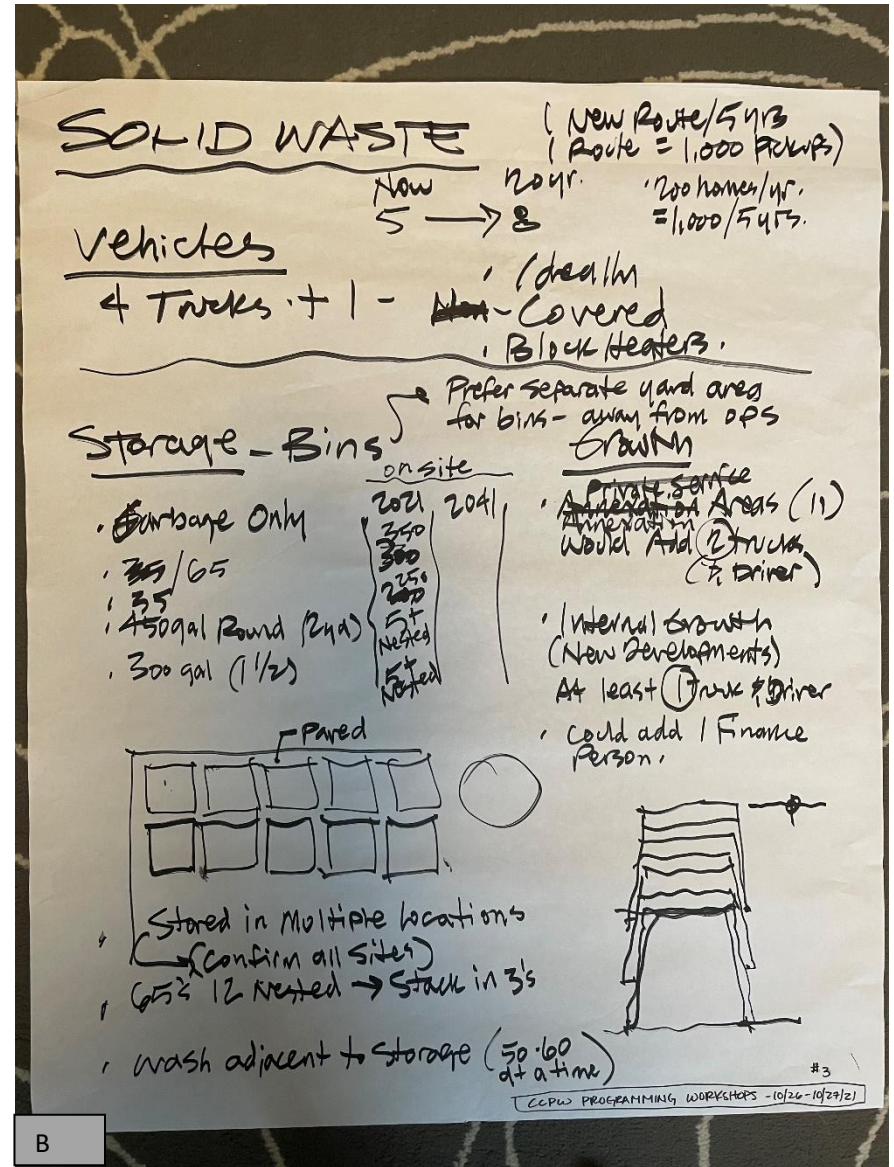 SOLID WASTE
1 New Route/5 yrs
(1 Route = 1,000 Pickups)
Now 20 yr.
5 → 8
· 200 homes/yr.
= 1,000/5 yrs.
Vehicles
4 Trucks + 1 -
· Ideally
Covered
· Block Heaters.
Prefer separate yard area
for bins - away from ops
Storage - Bins
on site
2021 2041
· Garbage Only
· /65
· 35
· 450gal Round (2yd)
· 300 gal (1 1/2)
350
250
5+
Nested
5+
Nested
Growth
Private Service
· Annexation Areas (11)
Annexation
Would Add 2 trucks
(& Driver)
· Internal Growth
(New Developments)
At least 1 Truck & Driver
· Could add 1 Finance
Person.
Paved
· Stored in Multiple Locations
(Confirm all Sites)
· 65's 12 Nested → Stack in 3's
· Wash adjacent to Storage (50-60
at a time)
#3
CCPW PROGRAMMING WORKSHOPS - 10/26-10/27/21
B